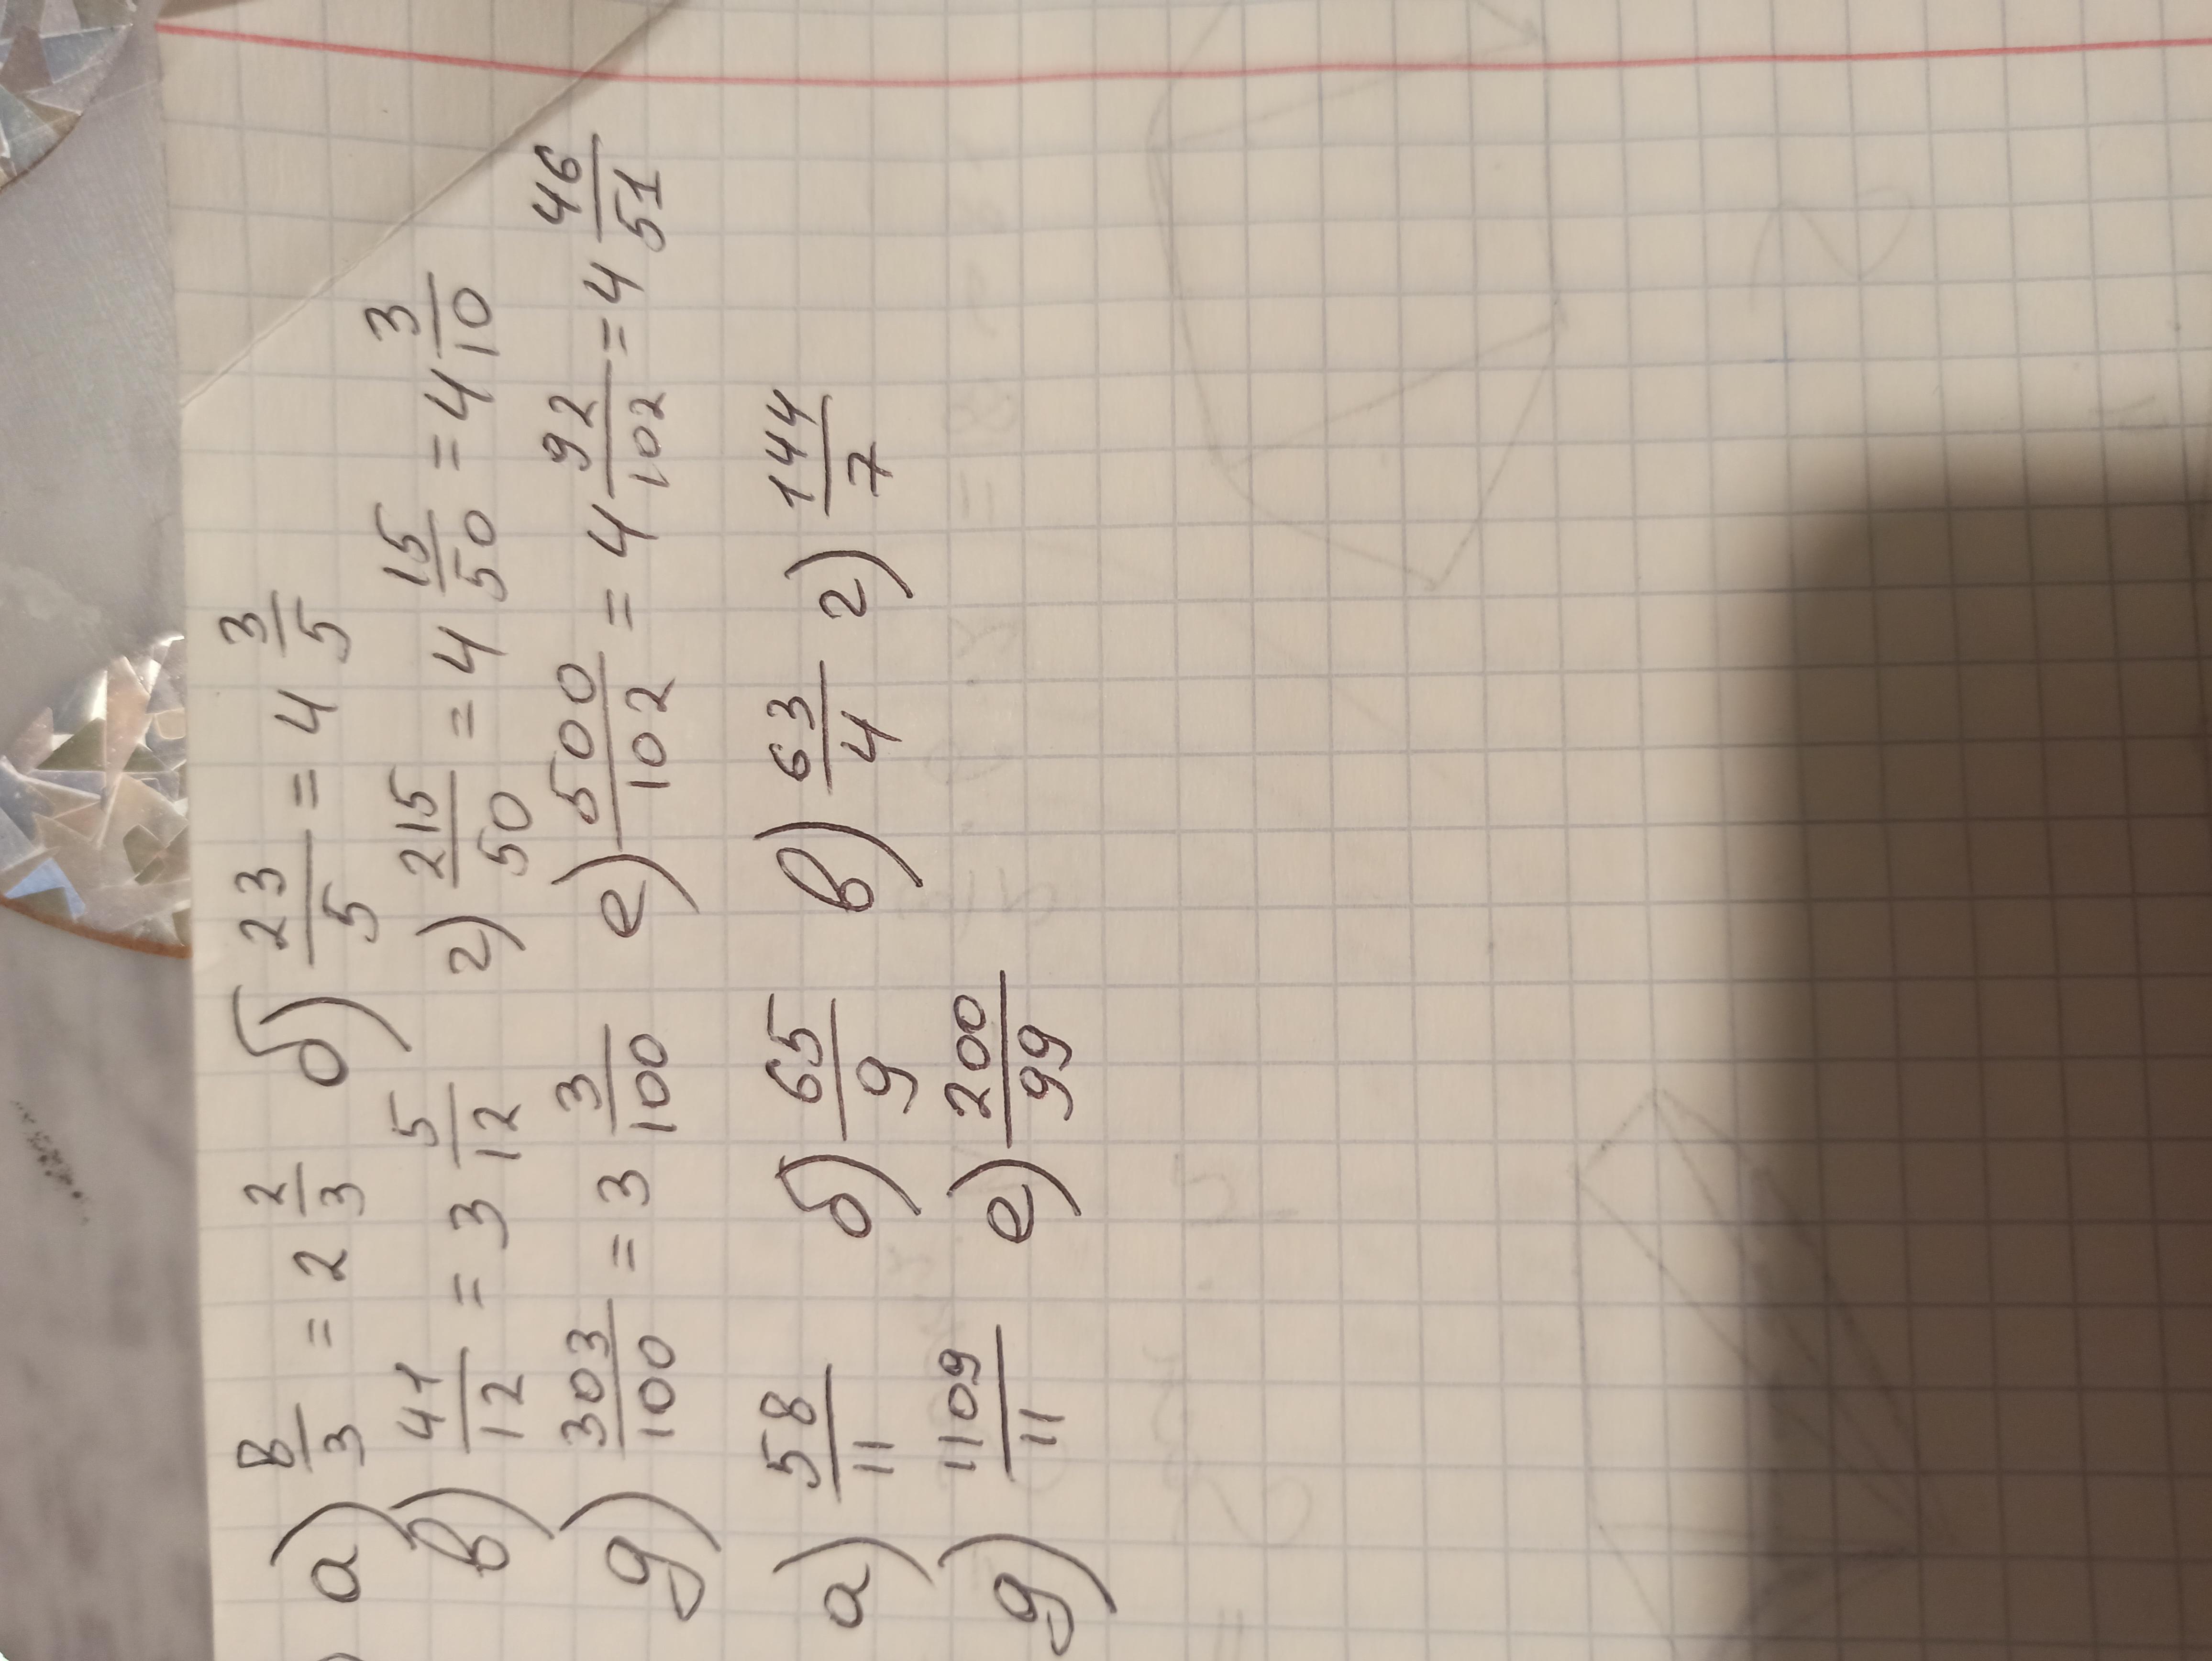 а) 8/3 = 2 2/3 б) 23/5 = 4 3/5
в) 41/12 = 3 5/12 г) 215/50 = 4 15/50 = 4 3/10
д) 303/100 = 3 3/100 е) 500/102 = 4 92/102 = 4 46/51
а) 58/11 б) 65/9 в) 63/4 г) 144/7
д) 1109/11 е) 200/99